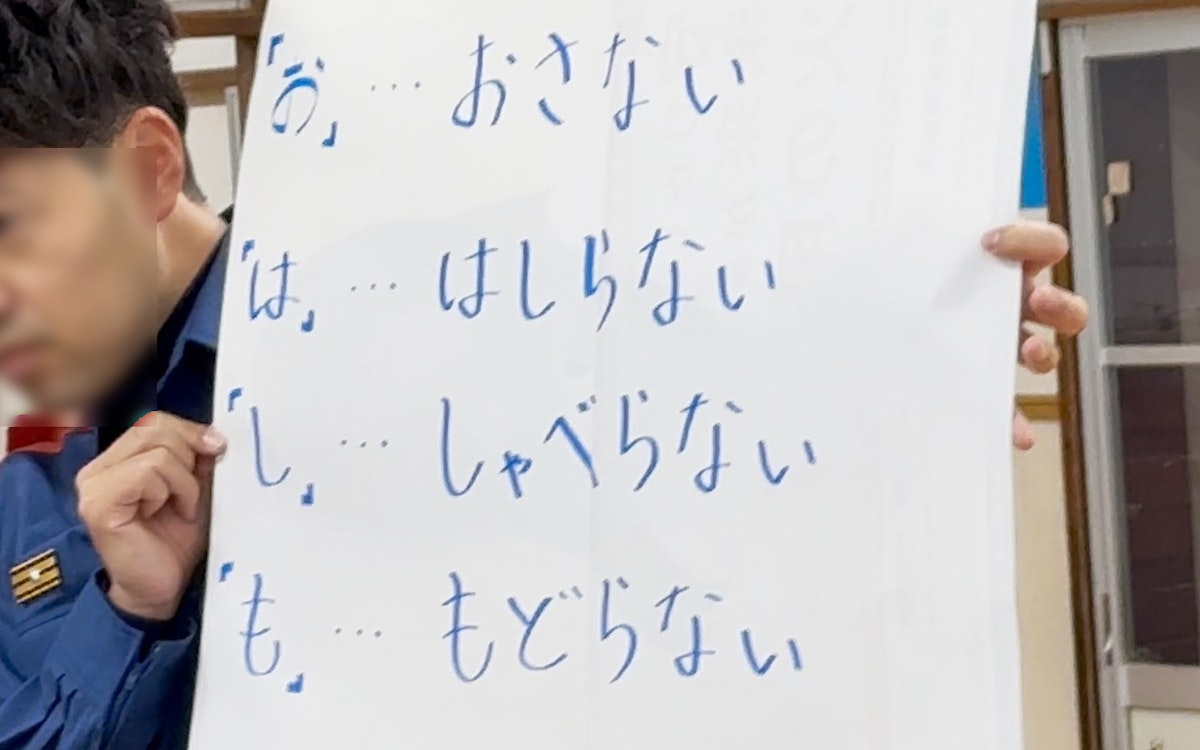 「お」…おさない
「は」…はしらない
「し」…しゃべらない
「も」…もどらない